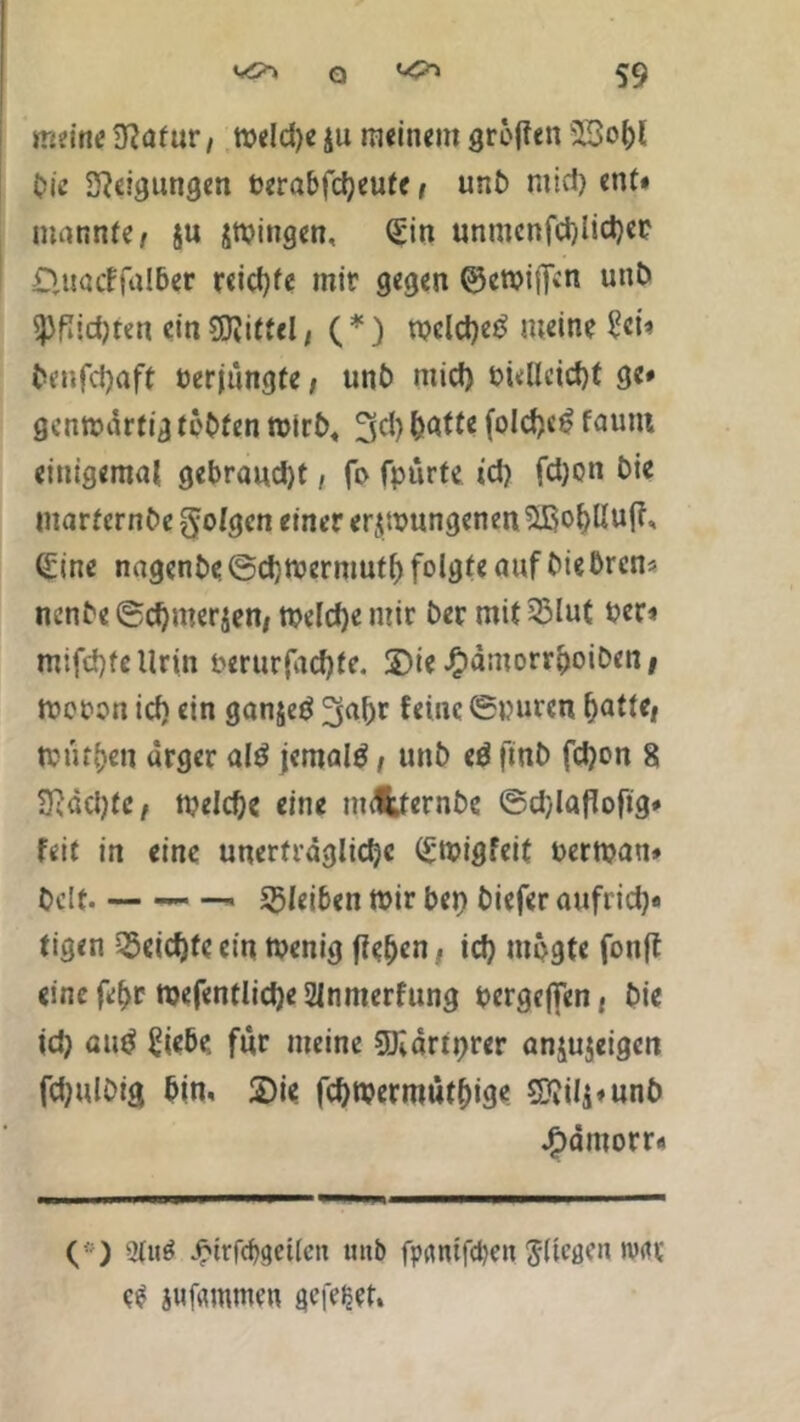 59
meine Natur, welche zu meinem größten Wohl
die Neigungen verabscheute, und mich ent-
mannte, zu zwingen. Ein unmenschlicher
Quacksalber reichte mir gegen Gewissen und
Pflichten ein Mittel, (*) welches meine Lei-
denschaft verjüngte, und mich vielleicht ge-
genwärtig tödten wird. Ich hatte solches kaum
einigemal gebraucht, so spürte ich schon die
marternde Folgen einer erzwungenen Wohllust.
Eine nagende Schwermuth folgte auf die bren-
nende Schmerzen, welche mir der mit Blut ver-
mischte Urin verursachte. Die Hämorrhoiden,
wovon ich ein ganzes Jahr keine Spuren hatte,
wüthen ärger als jemals, und es sind schon 8
Nächte, welche eine marternde Schlaflosig-
keit in eine unerträgliche Ewigkeit verwan-
delt. — — — Bleiben wir bey dieser aufrich-
tigen Beichte ein wenig stehen, ich mögte sonst
eine sehr wesentliche Anmerkung vergessen, die
ich aus Liebe für meine Märtyrer anzuzeigen
schuldig bin. Die schwermüthige Milz-und
Hämorr-
(*) Aus Hirschgeilen und spanischen Fliegen war
es zusammen gesetzet.